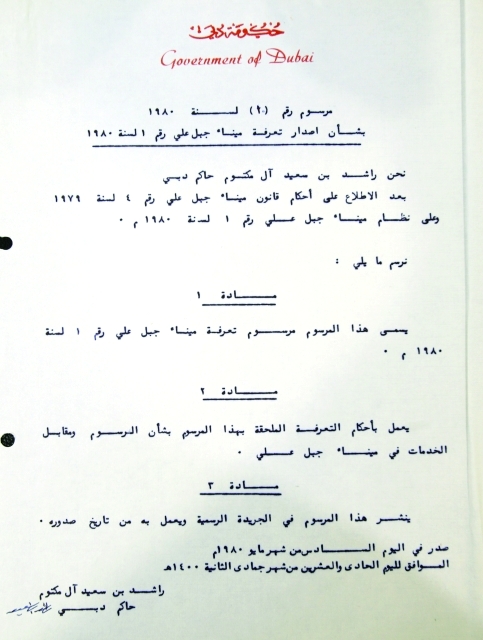 حكومة دبي
Government of Dubai
مرسوم رقم (٩٠) لسنة ١٩٨٠
بشأن اصدار تعرفة ميناء جبل علي رقم ١ لسنة ١٩٨٠
نحن راشد بن سعيد آل مكتوم حاكم دبي
بعد الاطلاع على أحكام قانون ميناء جبل علي رقم ٤ لسنة ١٩٧٩
وعلى نظام ميناء جبل علي رقم ١ لسنة ١٩٨٠ م ٠
نرسم ما يلي :
مادة ١
يسمى هذا المرسوم مرسوم تعرفة ميناء جبل علي رقم ١ لسنة
١٩٨٠ م ٠
مادة ٢
يعمل بأحكام التعرفة الملحقة بهذا المرسوم بشأن الرسوم ومقابل
الخدمات في ميناء جبل علي ٠
مادة ٣
ينشر هذا المرسوم في الجريدة الرسمية ويعمل به من تاريخ صدوره ٠
صدر في اليوم السادس من شهر مايو ١٩٨٠م
الموافق لليوم الحادى والعشرين من شهر جمادى الثانية ١٤٠٠هـ
راشد بن سعيد آل مكتوم
حاكم دبي